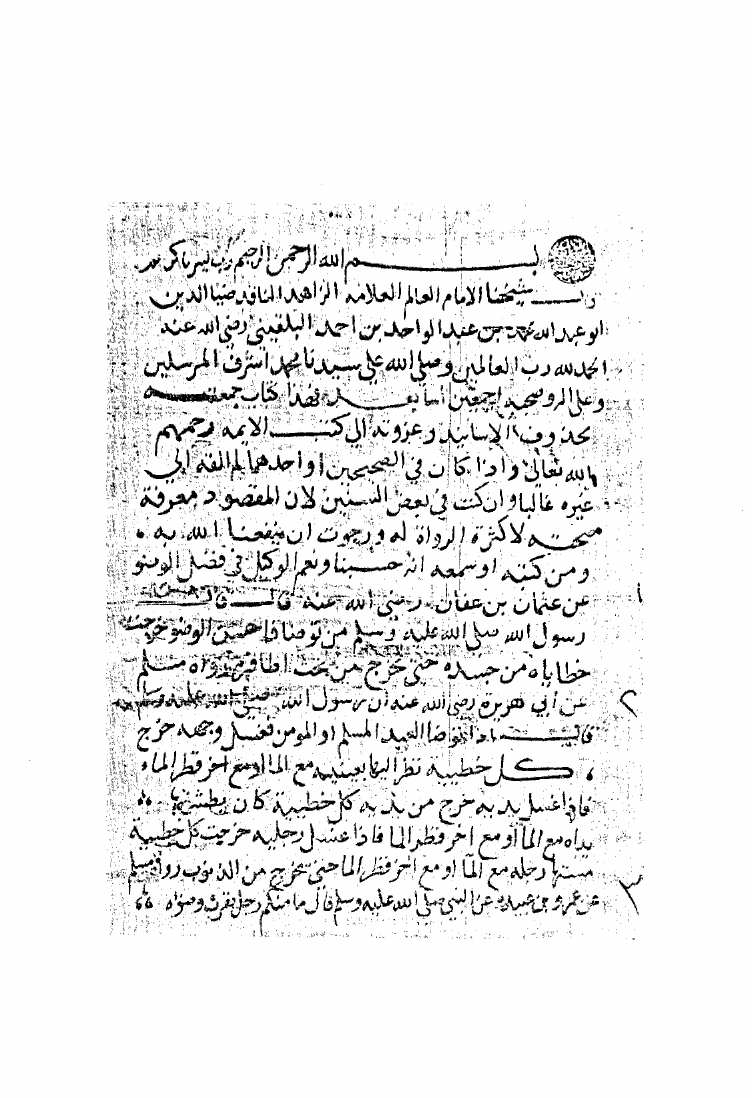 بسم الله الرحمن الرحيم رب يسر يا كريم
قال شيخنا الامام العالم العلامه الزاهد الناقد ضيا الدين
ابو عبد الله محمد بن عبد الواحد بن احمد رضي الله عنه
الحمد لله رب العالمين وصلي الله علي سيدنا محمد اشرف المرسلين
وعلي اله وصحبه اجمعين اما بعد فهذا كتاب جمعته
محذوف الاسانيد وعزوته الي كتب الايمه رحمهم
الله تعالي واذا كان في الصحيحين او احدهما لم الفه الي
غيره غالبا وان كنت في بعض السنين لان المقصود معرفة
صحته لا كثرة الرواة له ورجوت ان ينفعنا الله به
ومن كتبه او سمعه انه حسبنا ونعم الوكيل في فضل الوضو
عن عثمان بن عفان رضي الله عنه قال قال
رسول الله صلي الله عليه وسلم من توضا فاحسن الوضو خرجت
خطاياه من جسده حتي تخرج من تحت اظافره رواه مسلم
٢
عن ابي هريرة رضي الله عنه ان رسول الله صلي الله عليه وسلم
قال اذا توضا العبد المسلم او المومن فغسل وجهه خرج
كل خطيية نظر اليها بعينيه مع الما او مع اخر قطر الماء
فاذا غسل يديه خرج من يديه كل خطيية كان بطشتها
يداه مع الما او مع اخر قطر الما فاذا غسل رجليه خرجت كل خطيية
مستها رجله مع الما او مع اخر قطر الما حتي تخرج من الذنوب رواه مسلم
٣
عن عمرو بن عبسه عن النبي صلي الله عليه وسلم قال ما منكم رجل يقرب وضوه